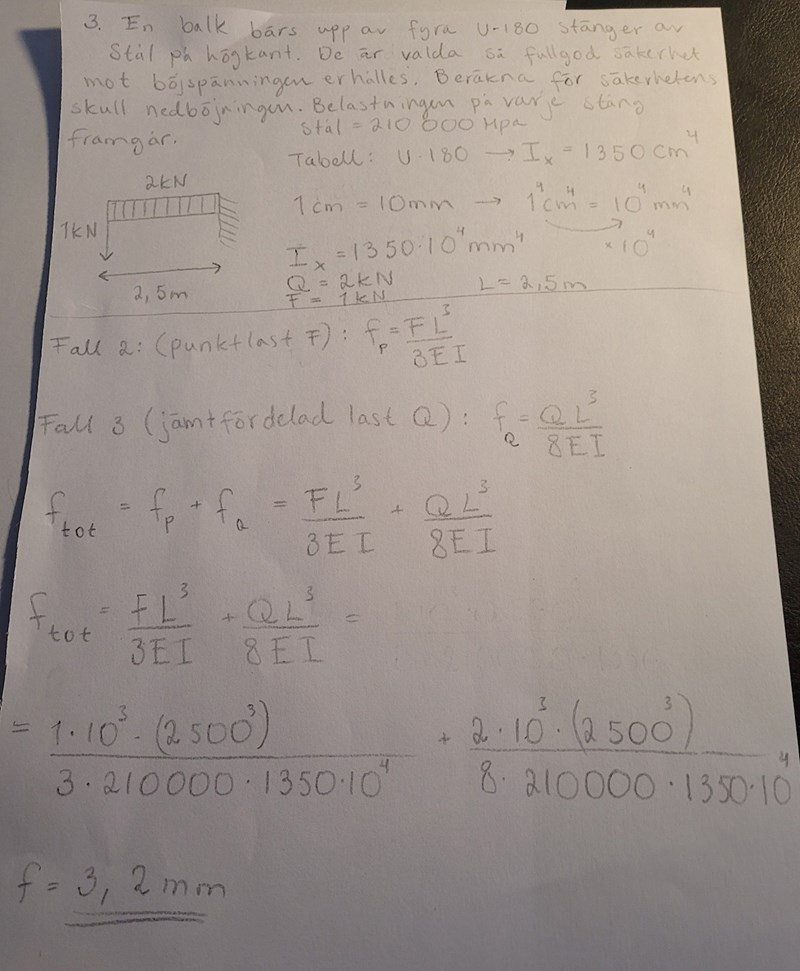 3. En balk bärs upp av fyra U-180 stänger av
Stål på högkant. De är valda så fullgod säkerhet
mot böjspänningen erhålles. Beräkna för säkerhetens
skull nedböjningen. Belastningen på varje stång
framgår.
Stål = 210 000 MPa
Tabell: U-180 → Iₓ = 1350 cm⁴
2kN
1kN
2,5m
1 cm = 10mm → 1⁴cm⁴ = 10⁴ mm⁴
×10⁴
Iₓ = 1350·10⁴ mm⁴
Q = 2kN
F = 1kN
L = 2,5m
Fall 2: (punktlast F): f_p = FL³/3EI
Fall 3 (jämtfördelad last Q): f_Q = QL³/8EI
f_tot = f_p + f_Q = FL³/3EI + QL³/8EI
f_tot = FL³/3EI + QL³/8EI =
= 1·10³·(2500³)/3·210000·1350·10⁴ + 2·10³·(2500³)/8·210000·1350·10⁴
f = 3,2mm